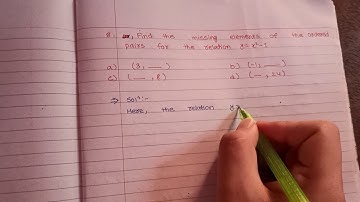 Find the missing elements of the ordered
pairs for the relation y = x² - 1
a) (3, __) b) (-1, __)
c) (__, 8) d) (__, 24)
⇒ Solⁿ:-
Here, the relation y =